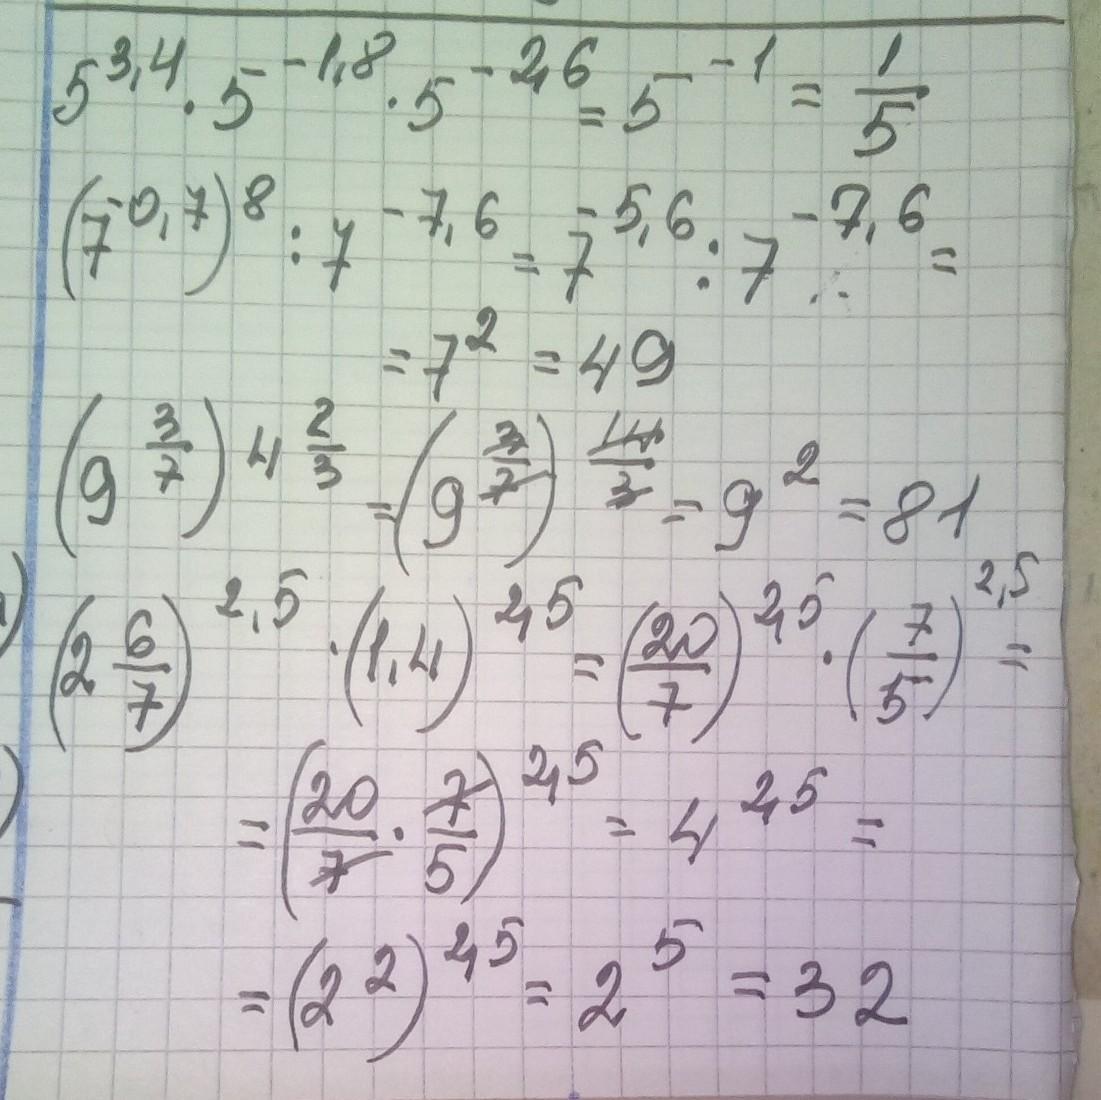 5^3,4 · 5^-1,8 · 5^-2,6 = 5^-1 = 1/5
(7^-0,7)^8 : 7^-7,6 = 7^-5,6 : 7^-7,6 =
= 7^2 = 49
(9^3/7)^4 2/3 = (9^3/7)^14/3 = 9^2 = 81
(2 6/7)^2,5 · (1,4)^2,5 = (20/7)^2,5 · (7/5)^2,5 =
= (20/7 · 7/5)^2,5 = 4^2,5 =
= (2^2)^2,5 = 2^5 = 32